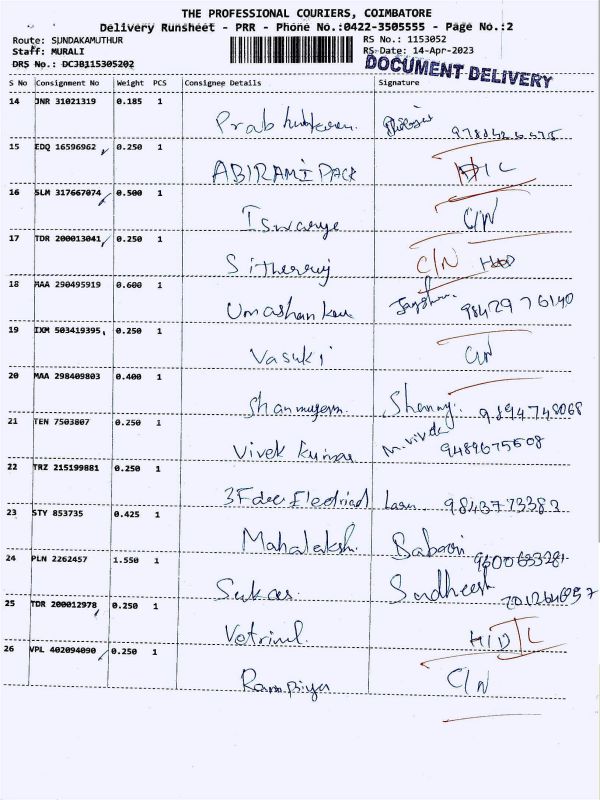 THE PROFESSIONAL COURIERS, COIMBATORE
Delivery Runsheet - PRR - Phone No.:0422-3505555 - Page No.:2
Route: SUNDAKAMUTHUR RS No.: 1153052
Staff: MURALI RS Date: 14-Apr-2023
DRS No.: DCJB115305202 DOCUMENT DELIVERY
S No Consignment No Weight PCS Consignee Details Signature
14 JNR 31021319 0.185 1
15 EDQ 16596962 0.250 1
ABIRAMI PACK
16 SLM 317667074 0.500 1
Iswarya C/N
17 TDR 200013041 0.250 1
C/N
18 MAA 290495919 0.600 1
Umashankar 98429 76140
19 IXM 503419395 0.250 1
Vasuki C/N
20 MAA 298409803 0.400 1
Shanmugam 9894748068
21 TEN 7503807 0.250 1
Vivek Kumar M. Vivek 9489675508
22 TRZ 215199881 0.250 1
3F Electrical 9843773382
23 STY 853735 0.425 1
Mahalaksh
24 PLN 2262457 1.550 1
Sudheesh
25 TDR 200012978 0.250 1
26 VPL 402094090 0.250 1
C/N